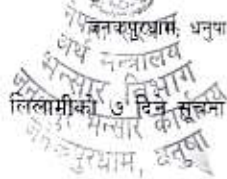 जनकपुरधाम, धनुषा
अर्थ मन्त्रालय
भन्सार विभाग
लिलामीको ७ दिने सूचना
भन्सार कार्यालय
जनकपुरधाम, धनुषा